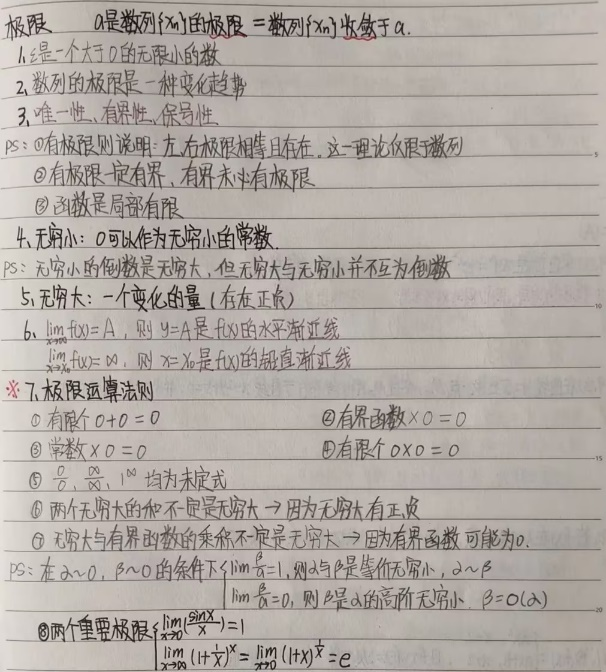 极限 a是数列{xn}的极限 = 数列{xn}收敛于a.
1、ε是一个大于0的无限小的数
2、数列的极限是一种变化趋势
3、唯一性、有界性、保号性
PS: ①有极限则说明:左、右极限相等且存在。这一理论仅限于数列
②有极限一定有界,有界未必有极限
③函数是局部有限
4、无穷小:0可以作为无穷小的常数.
PS: 无穷小的倒数是无穷大,但无穷大与无穷小并不互为倒数
5、无穷大:一个变化的量(存在正负)
6、lim x→∞ f(x)=A,则 y=A是f(x)的水平渐近线
lim x→x₀ f(x)=∞,则 x=x₀是f(x)的铅直渐近线
※ 7、极限运算法则
① 有限个 0+0=0 ②有界函数×0=0
③ 常数×0=0 ④有限个 0×0=0
⑤ 0/0、∞/∞、1^∞ 均为未定式
⑥ 两个无穷大的和不一定是无穷大→因为无穷大有正负
⑦ 无穷大与有界函数的乘积不一定是无穷大→因为有界函数可能为0.
PS: 在α~0,β~0的条件下{lim β/α=1,则α与β是等价无穷小,α~β
lim β/α=0,则β是α的高阶无穷小 β=0(α)
⑧两个重要极限{lim x→0 (sinx/x)=1
lim x→∞ (1+1/x)^x = lim x→0 (1+x)^(1/x) = e